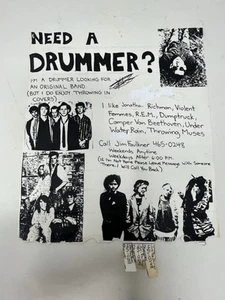 NEED A
DRUMMER?
I'M A DRUMMER LOOKING FOR
AN ORIGINAL BAND
(BUT I DO ENJOY THROWING IN
COVERS)
I like Jonathan Richman, Violent
Femmes, R.E.M., Dumptruck,
Camper Van Beethoven, Under
Water Rain, Throwing Muses
Call Jim Faulkner 465-0248
Weekends Anytime
Weekdays After 6:00 P.M.
(If I'm Not Home Please Leave Message with Someone
There. I Will Call You Back)